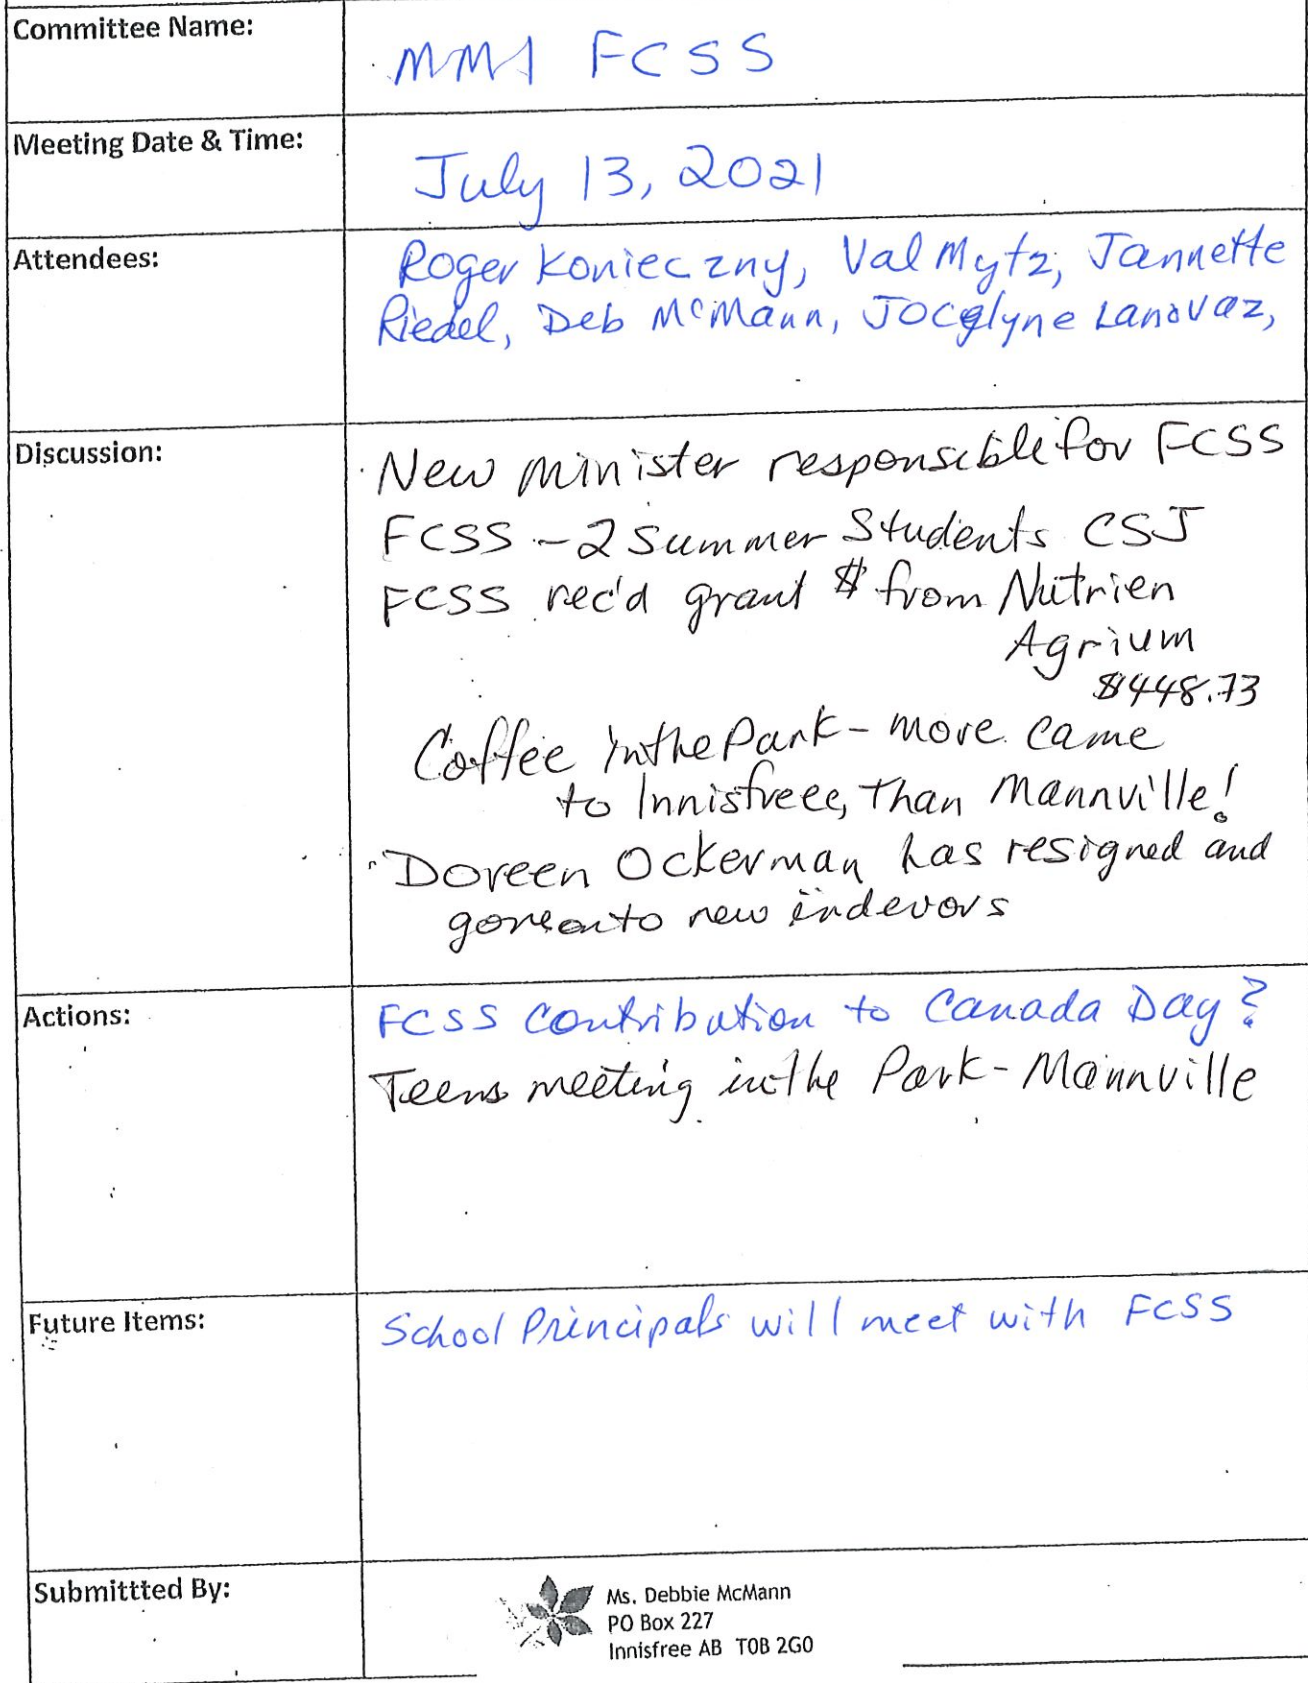 Committee Name:
MMI FCSS
Meeting Date & Time:
July 13, 2021
Attendees:
Roger Konieczny, Val Mytz, Jannette
Riedel, Deb McMann, Jocelyne Lanovaz,
Discussion:
New minister responsible for FCSS
FCSS - 2 Summer Students CSJ
FCSS rec'd grant $ from Nutrien
Agrium
$448.73
Coffee in the Park - more came
to Innisfreee, than Mannville!
Doreen Ockerman has resigned and
gone onto new endevors
Actions:
FCSS Contribution to Canada Day?
Teens meeting in the Park - Mannville
Future Items:
School Principals will meet with FCSS
Submittted By:
Ms. Debbie McMann
PO Box 227
Innisfree AB T0B 2G0